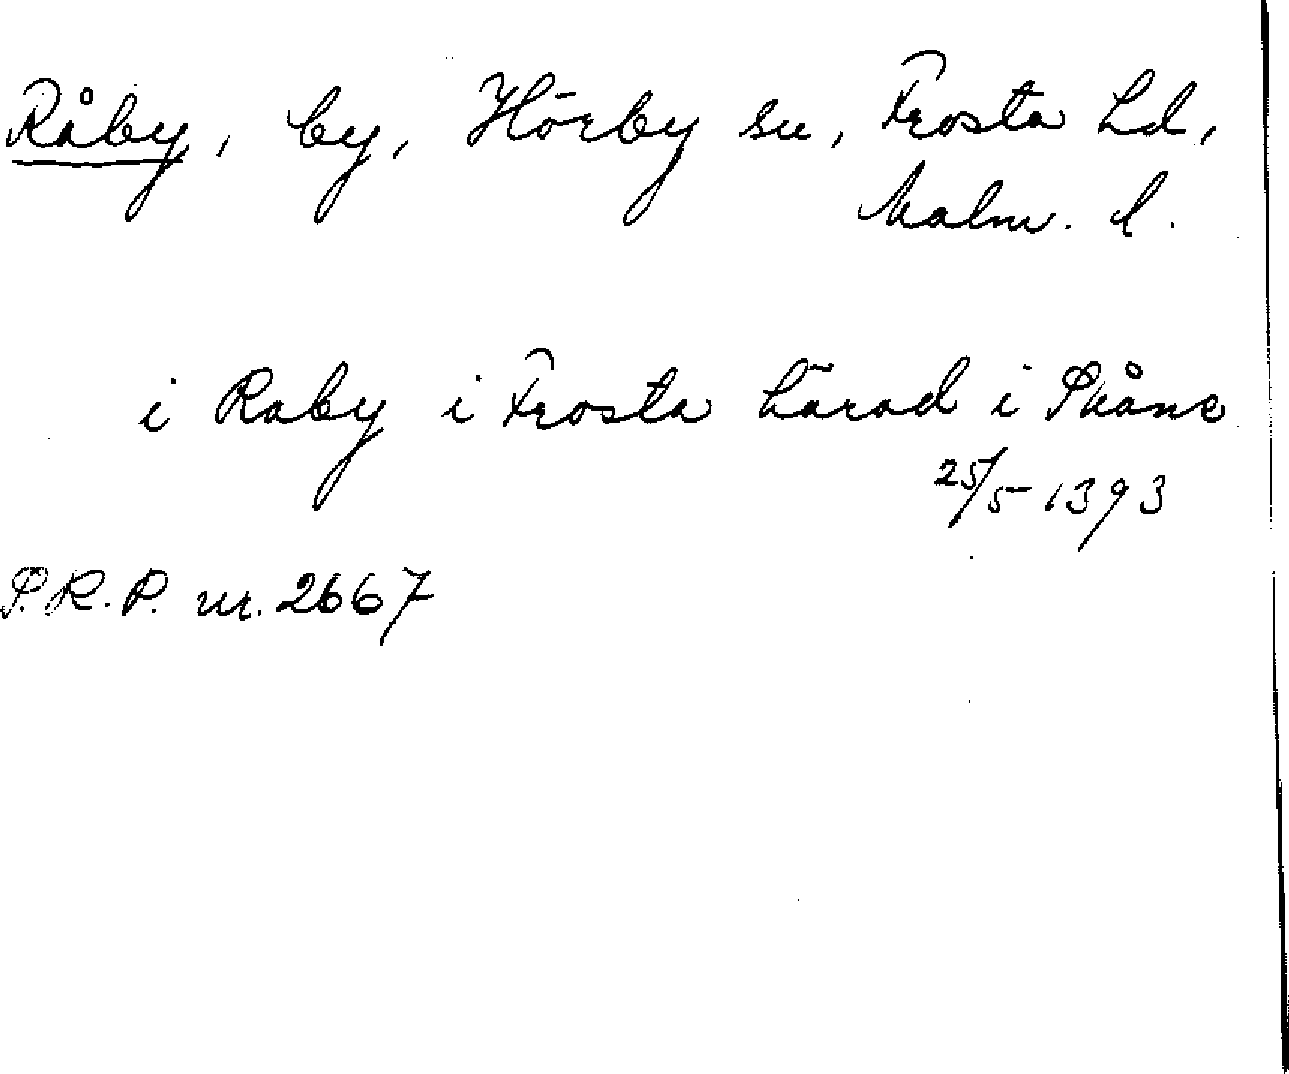 Råby, by, Hörby sn, Frosta hd,
Malm. l.
i Raby i Frosta härad i Skåne
25/5 1393
P.R.P. nr. 2667